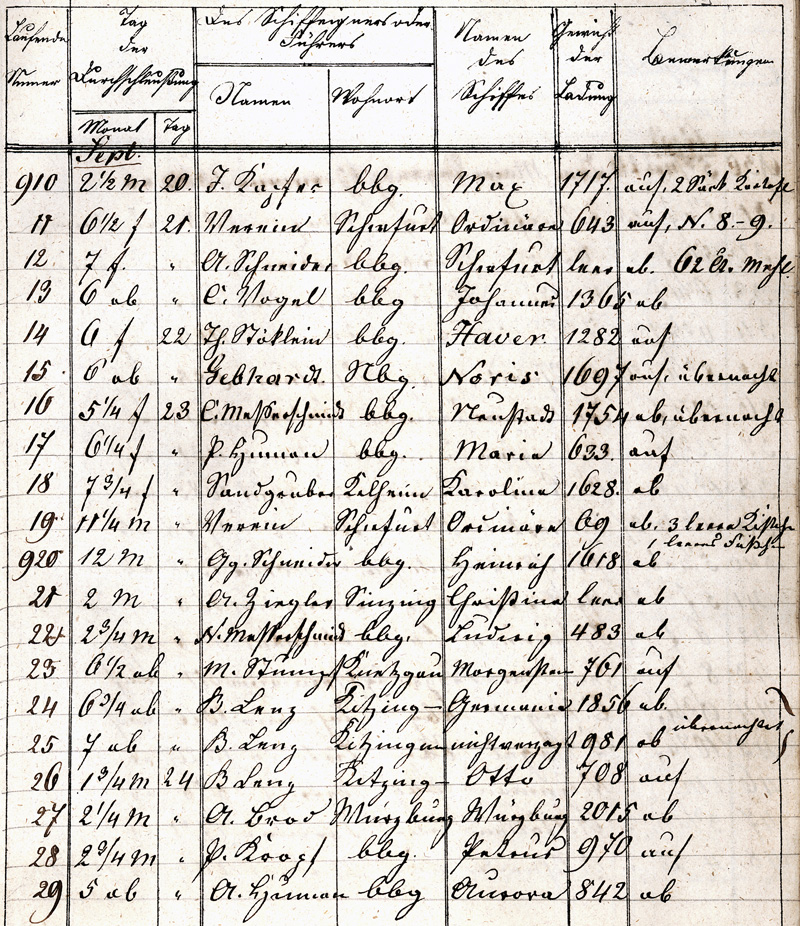 Laufende Numer | Tag der Durchschleußung | Des Schiffeigners oder Führers | Namen des Schiffes | Gewicht der Ladung | Bemerkungen
Monat | Tag | Namen | Wohnort
Sept.
910 2½ m 20. J. Kapfer bbg. Max 1717. auf, 2 Säck
11 6½ f 21. Verein Schwfurt Ordinäre 643 auf, N. 8.-9.
12 7 f. " A. Schneider bbg. Schwfurt leer ab. 62 Ct. Mehl
13 6 ab " C. Vogel bbg Johannes 1365 ab
14 6 f 22 Th. Stöklein bbg. Xaver. 1282 auf
15. 6 ab " Gebhardt. Nbg. Noris 1697 auf, übernacht
16 5¼ f 23 C. Messerschmidt bbg. Neustadt 1754 ab, übernacht
17 6¼ f " P. Human bbg. Maria 633. auf
18 7¾ f " Sandgruber Kelheim Karolina 1628. ab
19. 11¼ m " Verein Schwfurt Ordinäre 69 ab. 3 leere Kistchen
1 leeres Fäßchen
920 12 m " Gg. Schneider bbg. Heinrich 1618 ab
21 2 m " A. Ziegler Sinzing Christina leer ab
22 2¾ m " N. Messerschmidt bbg. Ludwig 483 ab
23 6½ ab " M. Stumpf Knetzgau Morgenstern 761 auf
24 6¾ ab " B. Lenz Kitzing– Germania 1856 ab
übernachtet
25 7 ab " B. Lenz Kitzingen nichtverzagt 981 ab
26 1¾ m 24 B Lenz Kitzing– Otto 708 auf
27 2¼ m " A. Brod Würzburg Würzburg 2015 ab
28 2¾ m " P. Kropf bbg. Petrus 970 auf
29 5 ab " A. Human bbg Aurora 842 ab